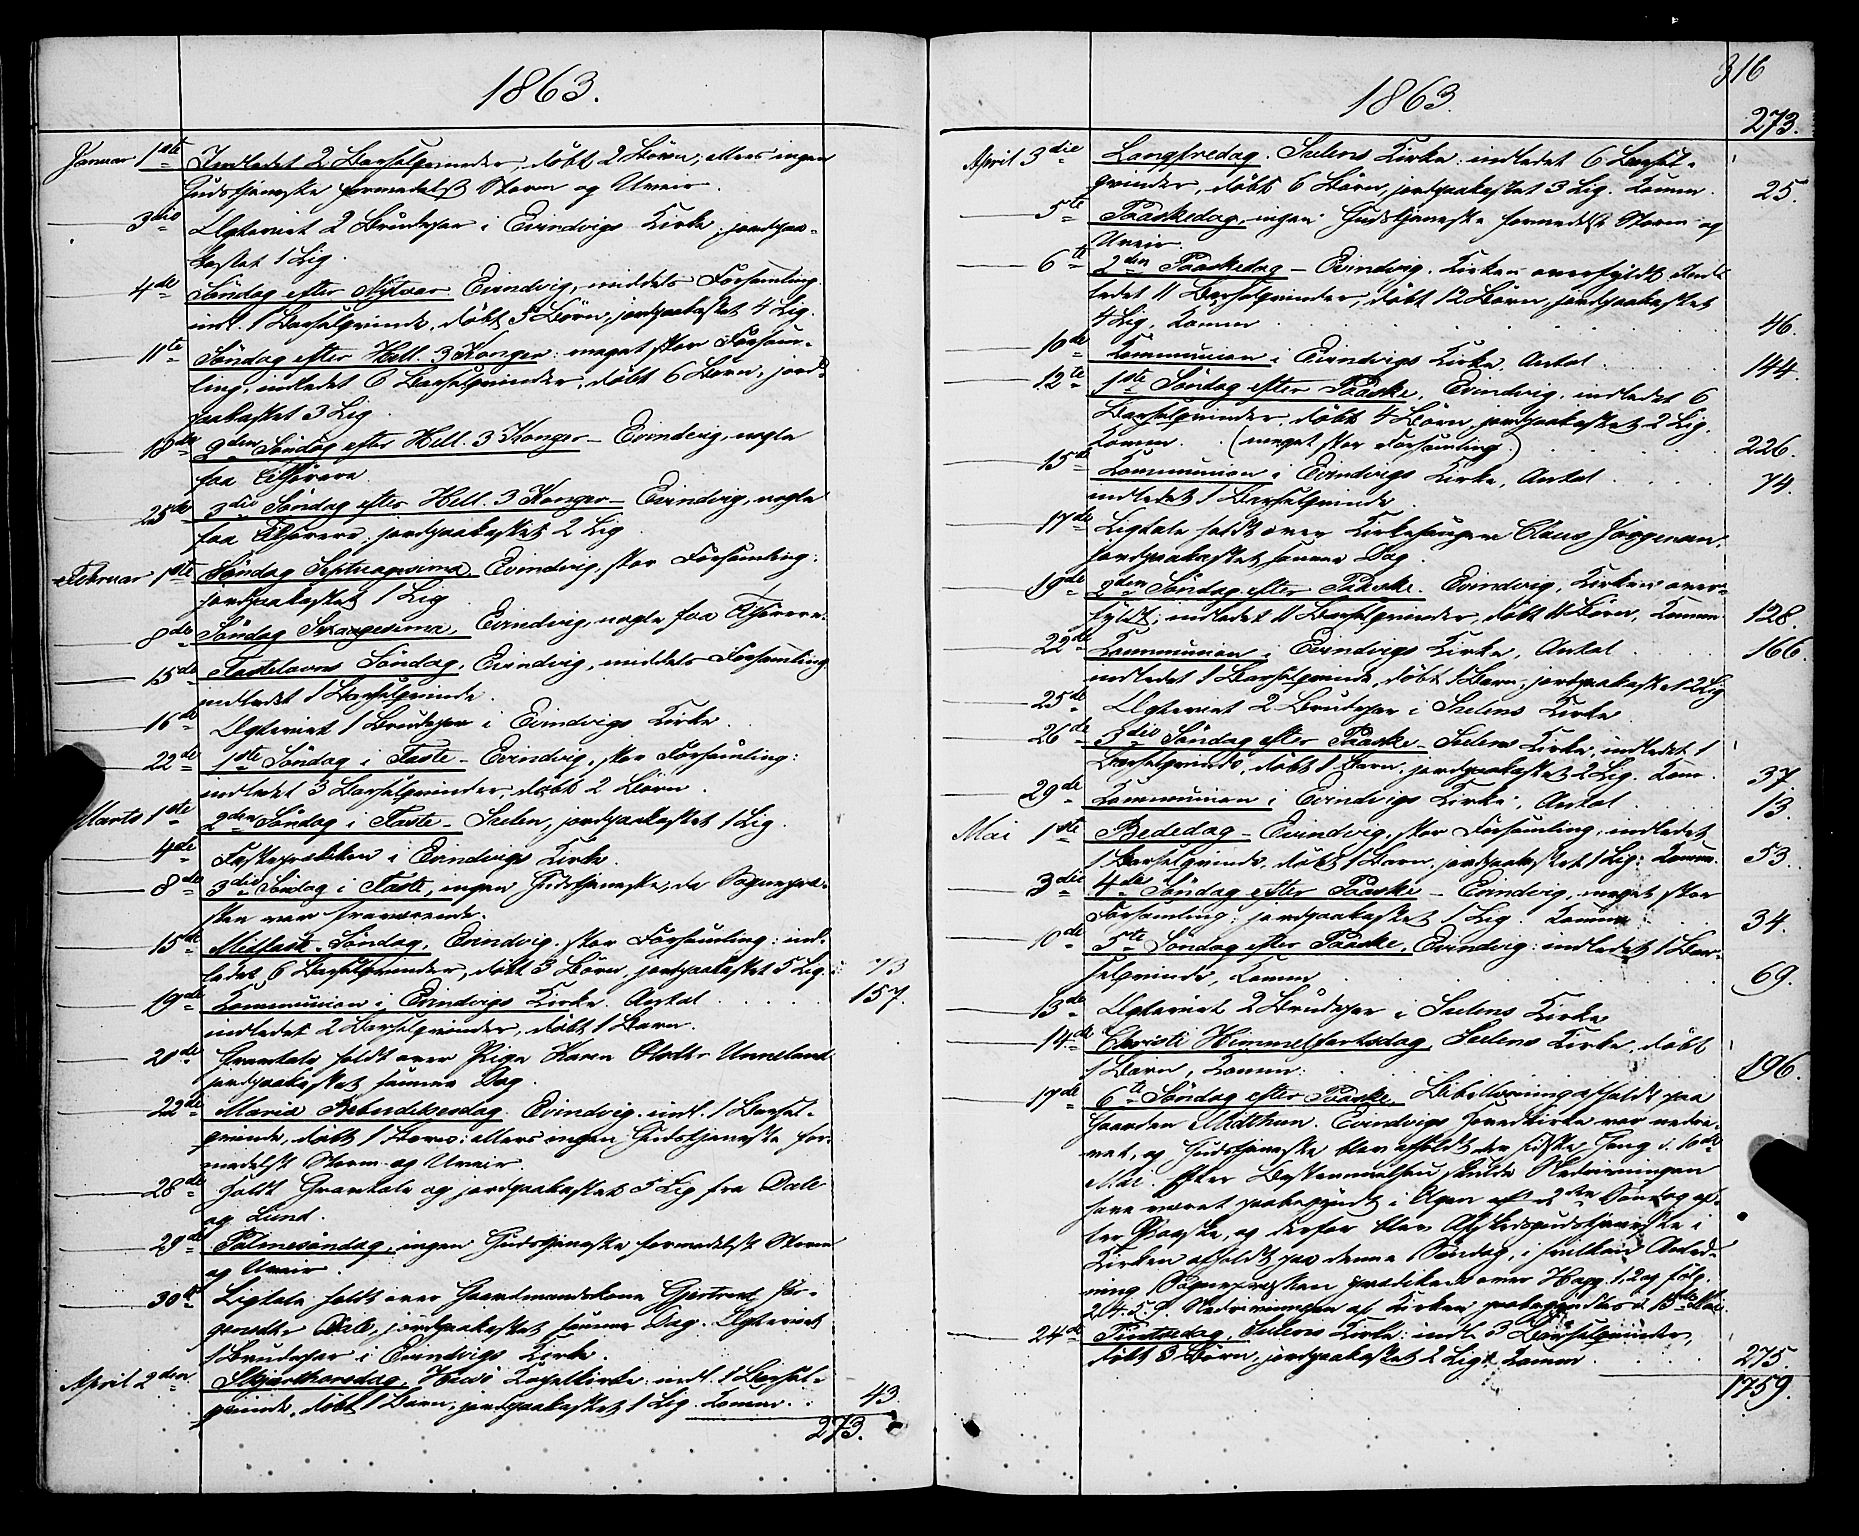 1863.
Januar 1ste Indledet 2 Barselqvinder, döbt 2 Börn; ellers ingen
Gudstjeneste formedelst Storm og Uveir.
3die Ægteviet 2 Brudepar i Evindvigs Kirke, jordpaa-
kastet 1 Lig.
4de Söndag efter Nytaar. Evindvig, middels Forsamling
indl. 1 Barselqvinde, döbt 5 Börn, jordpaakastet 4 Lig.
11te Söndag efter Hell. 3 Konger: meget stor Forsam-
ling, indledet 6 Barselqvinder, döbt 6 Börn, jord-
paakastet 3 Lig.
18de 2den Söndag efter Hell. 3 Konger – Evindvig, nogle
faa Tilhörere.
25de 3die Söndag efter Hell. 3 Konger – Evindvig, nogle
faa Tilhörere: jordpaakastet 2 Lig
Februar 1ste Söndag Septuagesima. Evindvig, stor Forsamling:
jordpaakastet 1 Lig
8de Söndag Sexagesima, Evindvig, nogle faa Tilhörere.
15de Fastelavns Söndag, Evindvig, middels Forsamling
indledet 1 Barselqvinde.
16de Ægteviet 1 Brudepar i Evindvigs Kirke.
22de 1ste Söndag i Faste – Evindvig, stor Forsamling:
indledet 3 Barselqvinder, döbt 2 Börn.
Marts 1ste 2den Söndag i Faste – Sulen, jordpaakastet 1 Lig.
4de Fasteprædiken i Evindvigs Kirke.
8de 3die Söndag i Faste, ingen Gudstjeneste, da Sognepræ-
sten var fraværende.
15de Midfaste-Söndag, Evindvig. stor Forsamling: ind-
ledet 6 Barselqvinder, döbt 3 Börn, jordpaakastet 5 Lig. 73
19de Kommunion i Evindvigs Kirke. Antal 157.
indledet 2 Barselqvinder, döbt 1 Barn.
20de Gravtale holdt over Pige Karen Unneland
jordpaakastet samme Dag.
22de Mariæ Bebudelsesdag. Evindvig. indl. 1 Barsel-
qvinde, döbt 1 Barn: ellers ingen Gudstjeneste for-
medelst Storm og Uveir.
28de Holdt Gravtale og jordpaakastet 5 Lig fra Dale
og Lund.
29de Palmesöndag, ingen Gudstjeneste formedelst Storm
og Uveir.
30te Ligtale holdt over Gaardmandskone Gjertrud Jör-
gensdtr Dale, jordpaakastet samme Dag. Ægteviet
1 Brudepar i Evindvigs Kirke.
April 2den Skjærthorsdag, Husö Kapelkirke: indl. 1 Barsel-
qvinde, döbt 1 Barn, jordpaakastet 1 Lig. Komm. 43
273.
316
1863.
273.
April 3die Langfredag. Sulens Kirke: indledet 6 Barsel-
qvinder, döbt 6 Börn, jordpaakastet 3 Lig. Komm. 25.
5te Paaskedag, ingen Gudstjeneste formedelst Storm og
Uveir.
6te 2den Paaskedag – Evindvig. Kirken overfyldt. Ind-
ledet 11 Barselqvinder, döbt 12 Börn, jordpaakastet
4 Lig, Komm 46.
10de Kommunion i Evindvigs Kirke. Antal 144.
12te 1ste Söndag efter Paaske. Evindvig, indledet 6
Barselqvinder, döbt 4 Börn, jordpaakastet 2 Lig.
Komm. (meget stor Forsamling) 226.
15de Kommunion i Evindvigs Kirke, Antal 74.
indledet 1 Barselqvinde.
17de Ligtale holdt over Kirkesanger Claus
jordpaakastet samme Dag.
19de 2den Söndag efter Paaske. Evindvig, Kirken over-
fyldt; indledet 11 Barselqvinder, döbt 11 Börn, Komm 128.
22de Kommunion i Evindvigs Kirke, Antal 166.
indledet 1 Barselqvinde, döbt 1 Barn, jordpaakastet 2 Lig
25de Ægteviet 2 Brudepar i Sulens Kirke
26de 3die Söndag efter Paaske – Sulens Kirke, indledet 1
Barselqvinde, döbt 1 Barn, jordpaakastet 2 Lig. Kom. 37.
29de Kommunion i Evindvigs Kirke, Antal 13.
Mai 1ste Bededag – Evindvig, stor Forsamling, indledet
1 Barselqvinde, döbt 1 Barn, jordpaakastet 1 Lig: Komm. 53.
3die 4de Söndag efter Paaske – Evindvig, meget stor
Forsamling; jordpaakastet 1 Lig. Komm 34.
10de 5te Söndag efter Paaske, Evindvig: indledet 1 Bar-
selqvinde, Komm 69.
13de Ægteviet 2 Brudepar i Sulens Kirke
14de Christi Himmelfartsdag, Sulens Kirke, döbt
1 Barn, Komm: 196.
17de 6te Söndag efter Paaske. Bibellæsning afholdt paa
Gaarden Midthun. Evindvigs Hovedkirke var nedre-
vet, og Gudstjeneste blev afholdt der sidste Gang d. 10de
Mai. Efter Bestemmelsen skulde Nedrivningen
have været paabegyndt i Ugen efter 2den Söndag ef-
ter Paaske, og derfor blev Afskedsgudstjeneste i
Kirken afholdt paa denne Söndag, i hvilken Anled-
ning Sognepræsten prædikede over Hagg. 1.2 og fölg.
2.4.5.9. Nedrivningen af Kirken paabegyndtes d. 13de Mai.
24de Pintsedag, Sulens Kirke: indl. 3 Barselqvinder,
döbt 3 Börn, jordpaakastet 2 Lig. Komm 275.
1759.